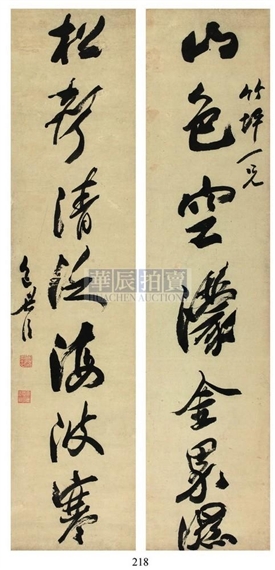 竹坪一兄
山色空濛金界濕
松聲清泛海波寒
包世臣
華辰拍賣
HUACHEN AUCTION
218